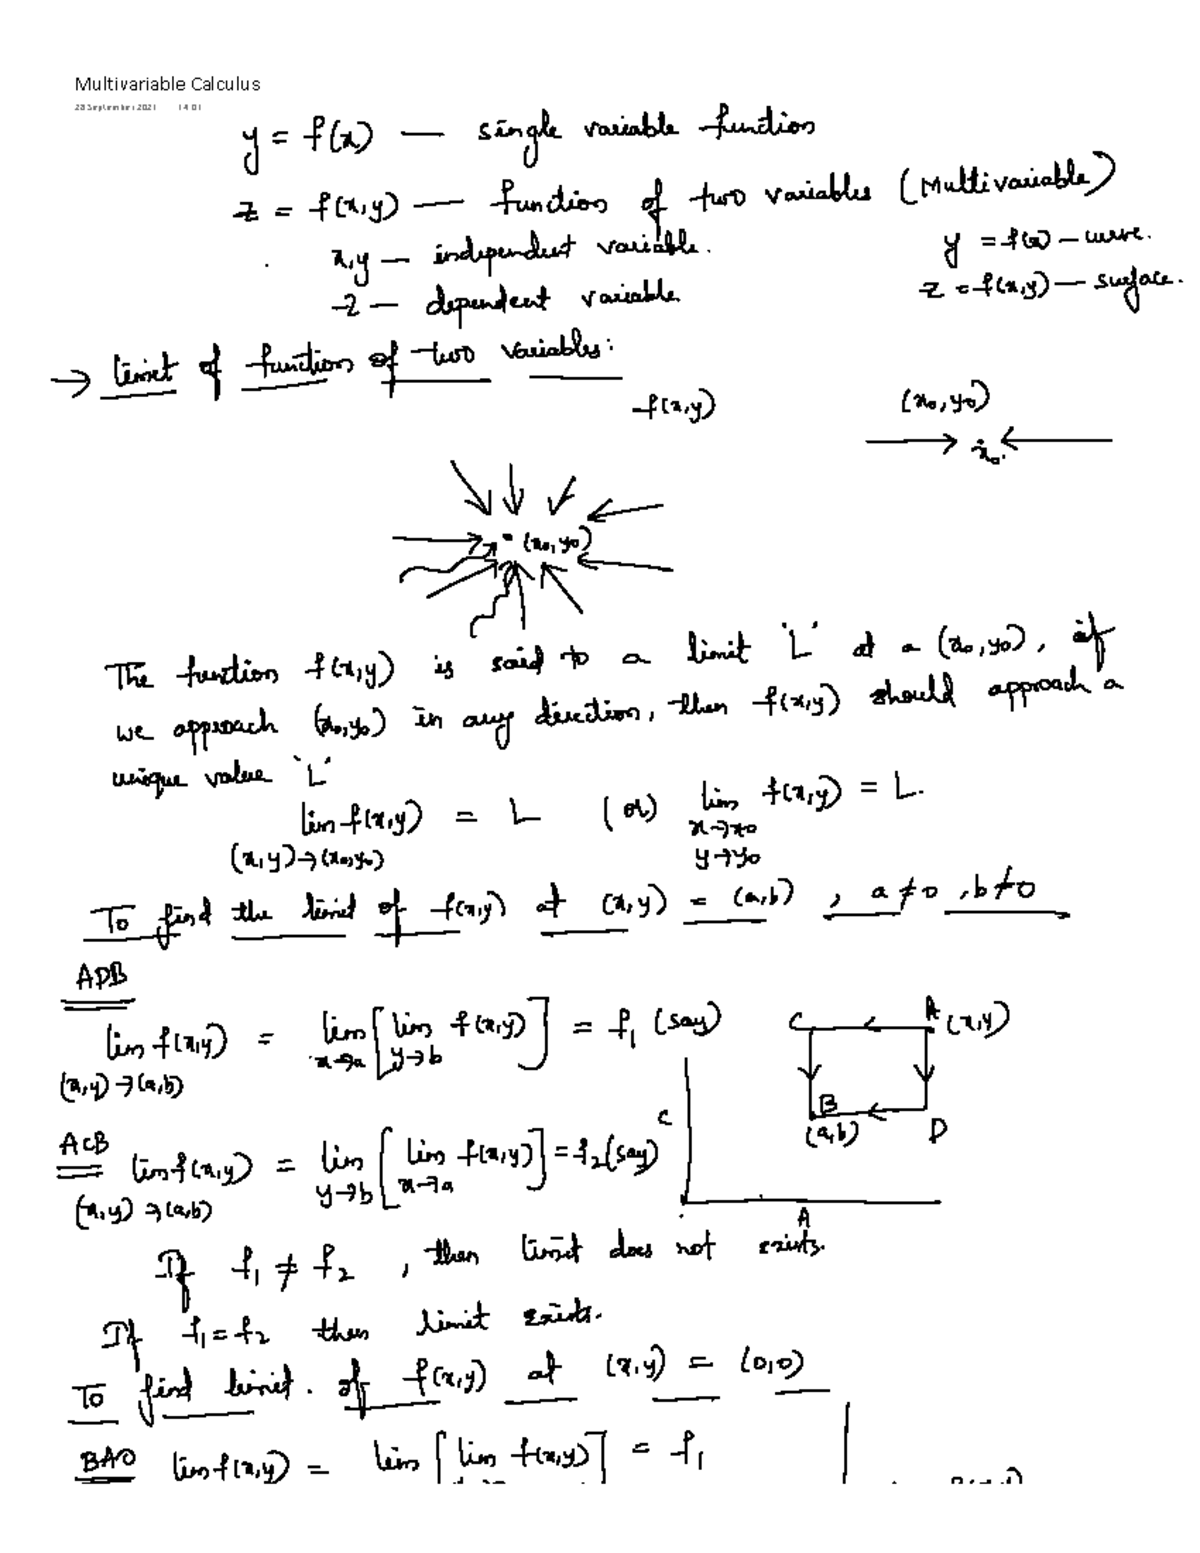 Multivariable Calculus
28 September 2021 14:01
y = f(x) — single variable function
z = f(x,y) — function of two variables (Multivariable)
x,y — independent variable.
y = f(x) — curve.
z — dependent variable
z = f(x,y) — surface.
→ Limit of function of two variables:
f(x,y)
(x₀,y₀)
x₀.
(x₀,y₀)
The function f(x,y) is said to a limit 'L' at a (x₀,y₀), if
we approach (x₀,y₀) in any direction, then f(x,y) should approach a
unique value 'L'
lim f(x,y) = L (or) lim f(x,y) = L.
(x,y)→(x₀,y₀) x→x₀
y→y₀
To find the limit of f(x,y) at (x,y) = (a,b) , a≠0 , b≠0
ADB
lim f(x,y) = lim [lim f(x,y)] = f₁ (say)
(x,y)→(a,b) x→a y→b
C A (x,y)
B
(a,b) D
C
ACB
lim f(x,y) = lim [lim f(x,y)] = f₂ (say)
(x,y)→(a,b) y→b x→a
A
If f₁ ≠ f₂ , then limit does not exists.
If f₁ = f₂ then limit exists.
To find limit. of f(x,y) at (x,y) = (0,0)
BAO lim f(x,y) = lim [lim f(x,y)] = f₁